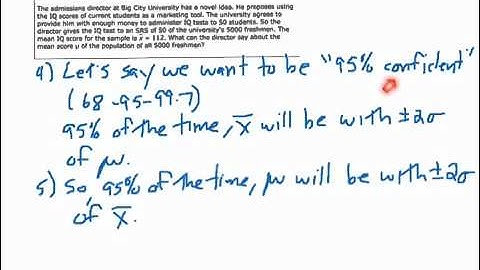 The admissions director at Big City University has a novel idea. He proposes using
the IQ scores of current students as a marketing tool. The university agrees to
provide him with enough money to administer IQ tests to 50 students. So the
director gives the IQ test to an SRS of 50 of the university's 5000 freshmen. The
mean IQ score for the sample is x̄ = 112. What can the director say about the
mean score μ of the population of all 5000 freshmen?
4) Let's say we want to be "95% confident"
(68-95-99.7)
95% of the time, x̄ will be with ±2σ
of μ.
5) So, 95% of the time, μ will be with ±2σ
of x̄.